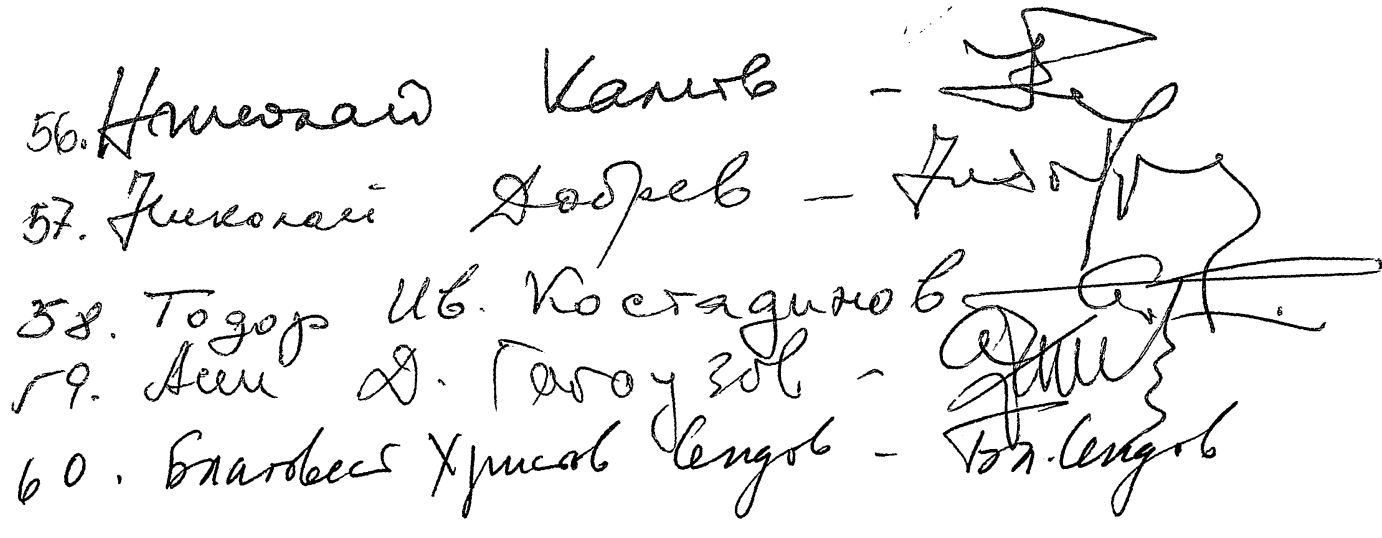 56. Николай Камов -
57. Николай Добрев -
58. Тодор Ив. Костадинов
59. Асен Д. Гагоузов -
60. Благовест Христов Сендов - Бл. Сендов